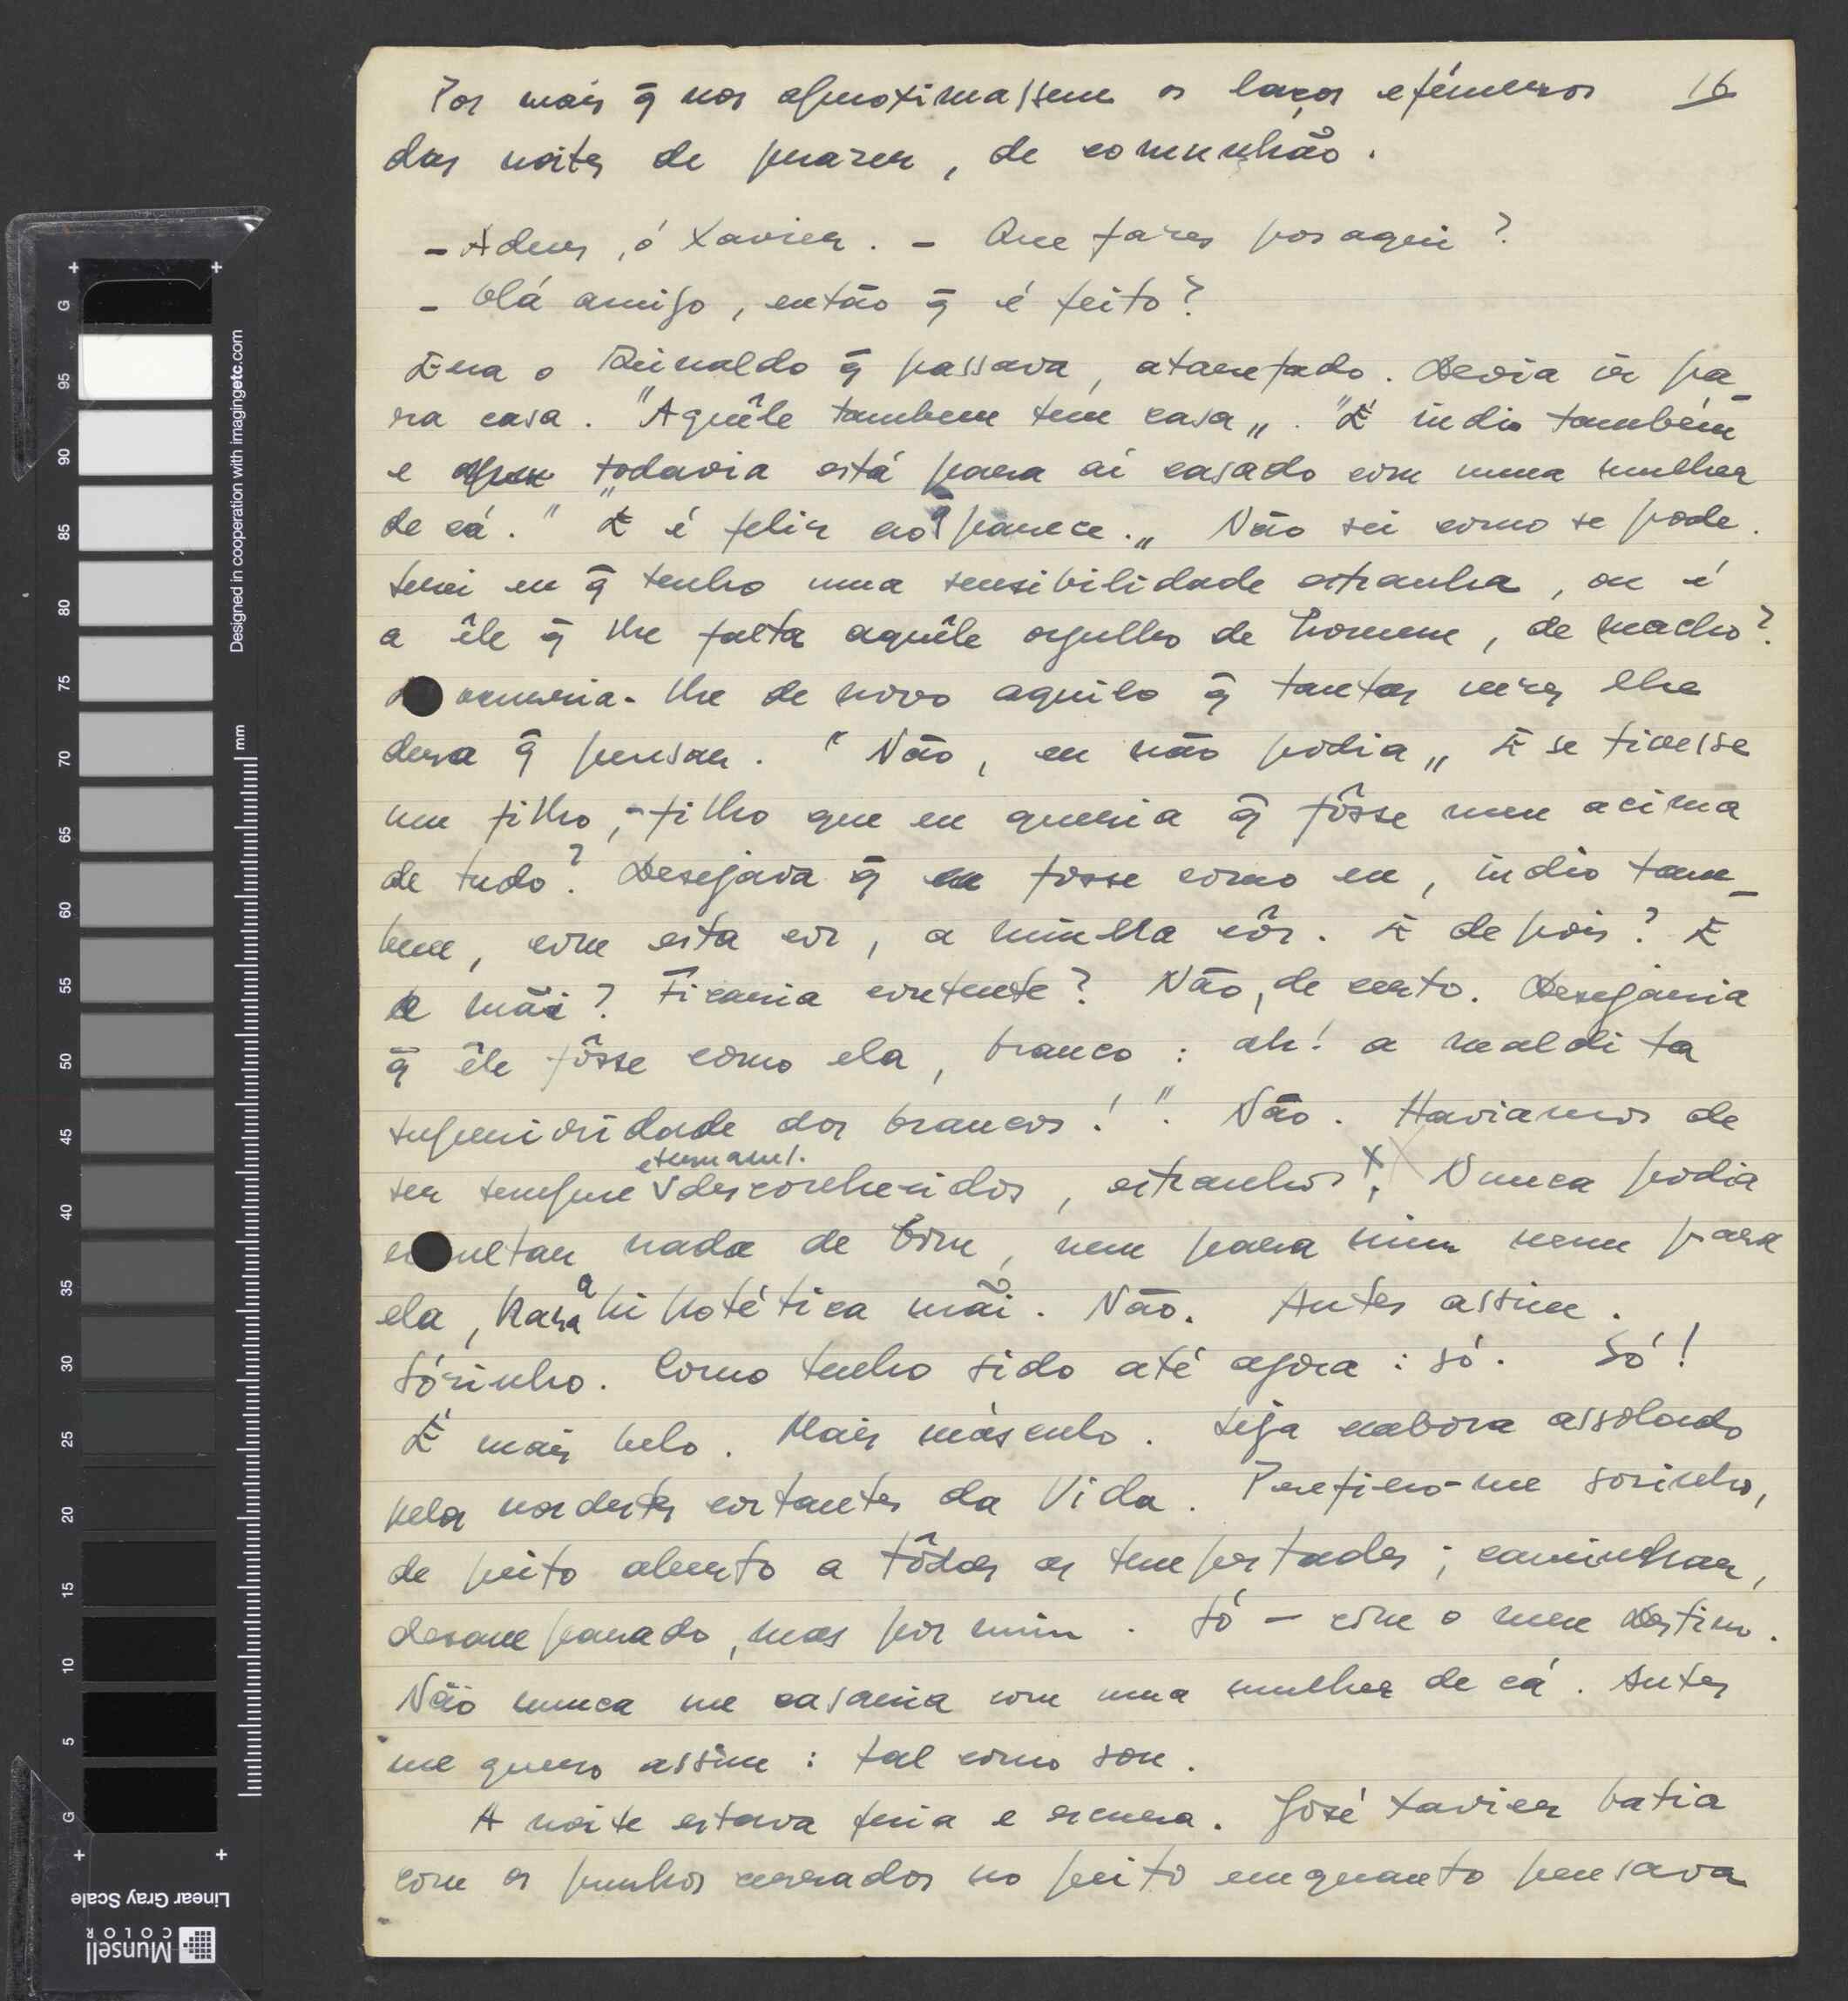 Por mais q̄ nos aproximassem os laços efémeros 16
das noites de prazer, de comunhão.
- Adeus, ó Xavier. - Que fazes por aqui?
- Olá amigo, então q̄ é feito?
Era o Reinaldo q̄ passava, atarefado. Devia ir pa-
ra casa. "Aquêle tambem tem casa„. "É indio também
e todavia está para aí casado com uma mulher
de cá." "E é feliz ao q̄ parece.„ Não sei como se pode.
Serei eu q̄ tenho uma sensibilidade estranha, ou é
a êle q̄ lhe falta aquêle orgulho de homem, de macho?
ocorria-lhe de novo aquilo q̄ tantas vezes lhe
dera q̄ pensar. "Não, eu não podia„ E se tivesse
um filho, - filho que eu queria q̄ fôsse meu acima
de tudo? Desejava q̄ fosse como eu, indio tam-
bem, com esta cor, a minha côr. E depois? E
a mãi? Ficaria contente? Não, de certo. Desejaria
q̄ êle fôsse como ela, branco: ah! a maldita
superioridade dos brancos!". Não. Haviamos de
ser sempre eternam/. desconhecidos, estranhos. Nunca podia
resultar nada de bom, nem para mim nem para
ela, para a hipotética mãi. Não. Antes assim.
Sózinho. Como tenho sido até agora: só. Só!
É mais belo. Mais másculo. Seja embora assolado
pelos nordestes cortantes da Vida. Prefiro-me sozinho,
de peito aberto a tôdas as tempestades; caminhar,
desamparado, mas por mim. Só - com o meu destino.
Não nunca me casaria com uma mulher de cá. Antes
me quero assim: tal como sou.
A noite estava fria e escura. José Xavier batia
com os punhos cerrados no peito emquanto pensava
G 95 90 85 80 75 70 65 60 55 50 45 40 35 30 25 20 15 10 5 G
mm
Designed in cooperation with imagingetc.com
Linear Gray Scale
Munsell
COLOR